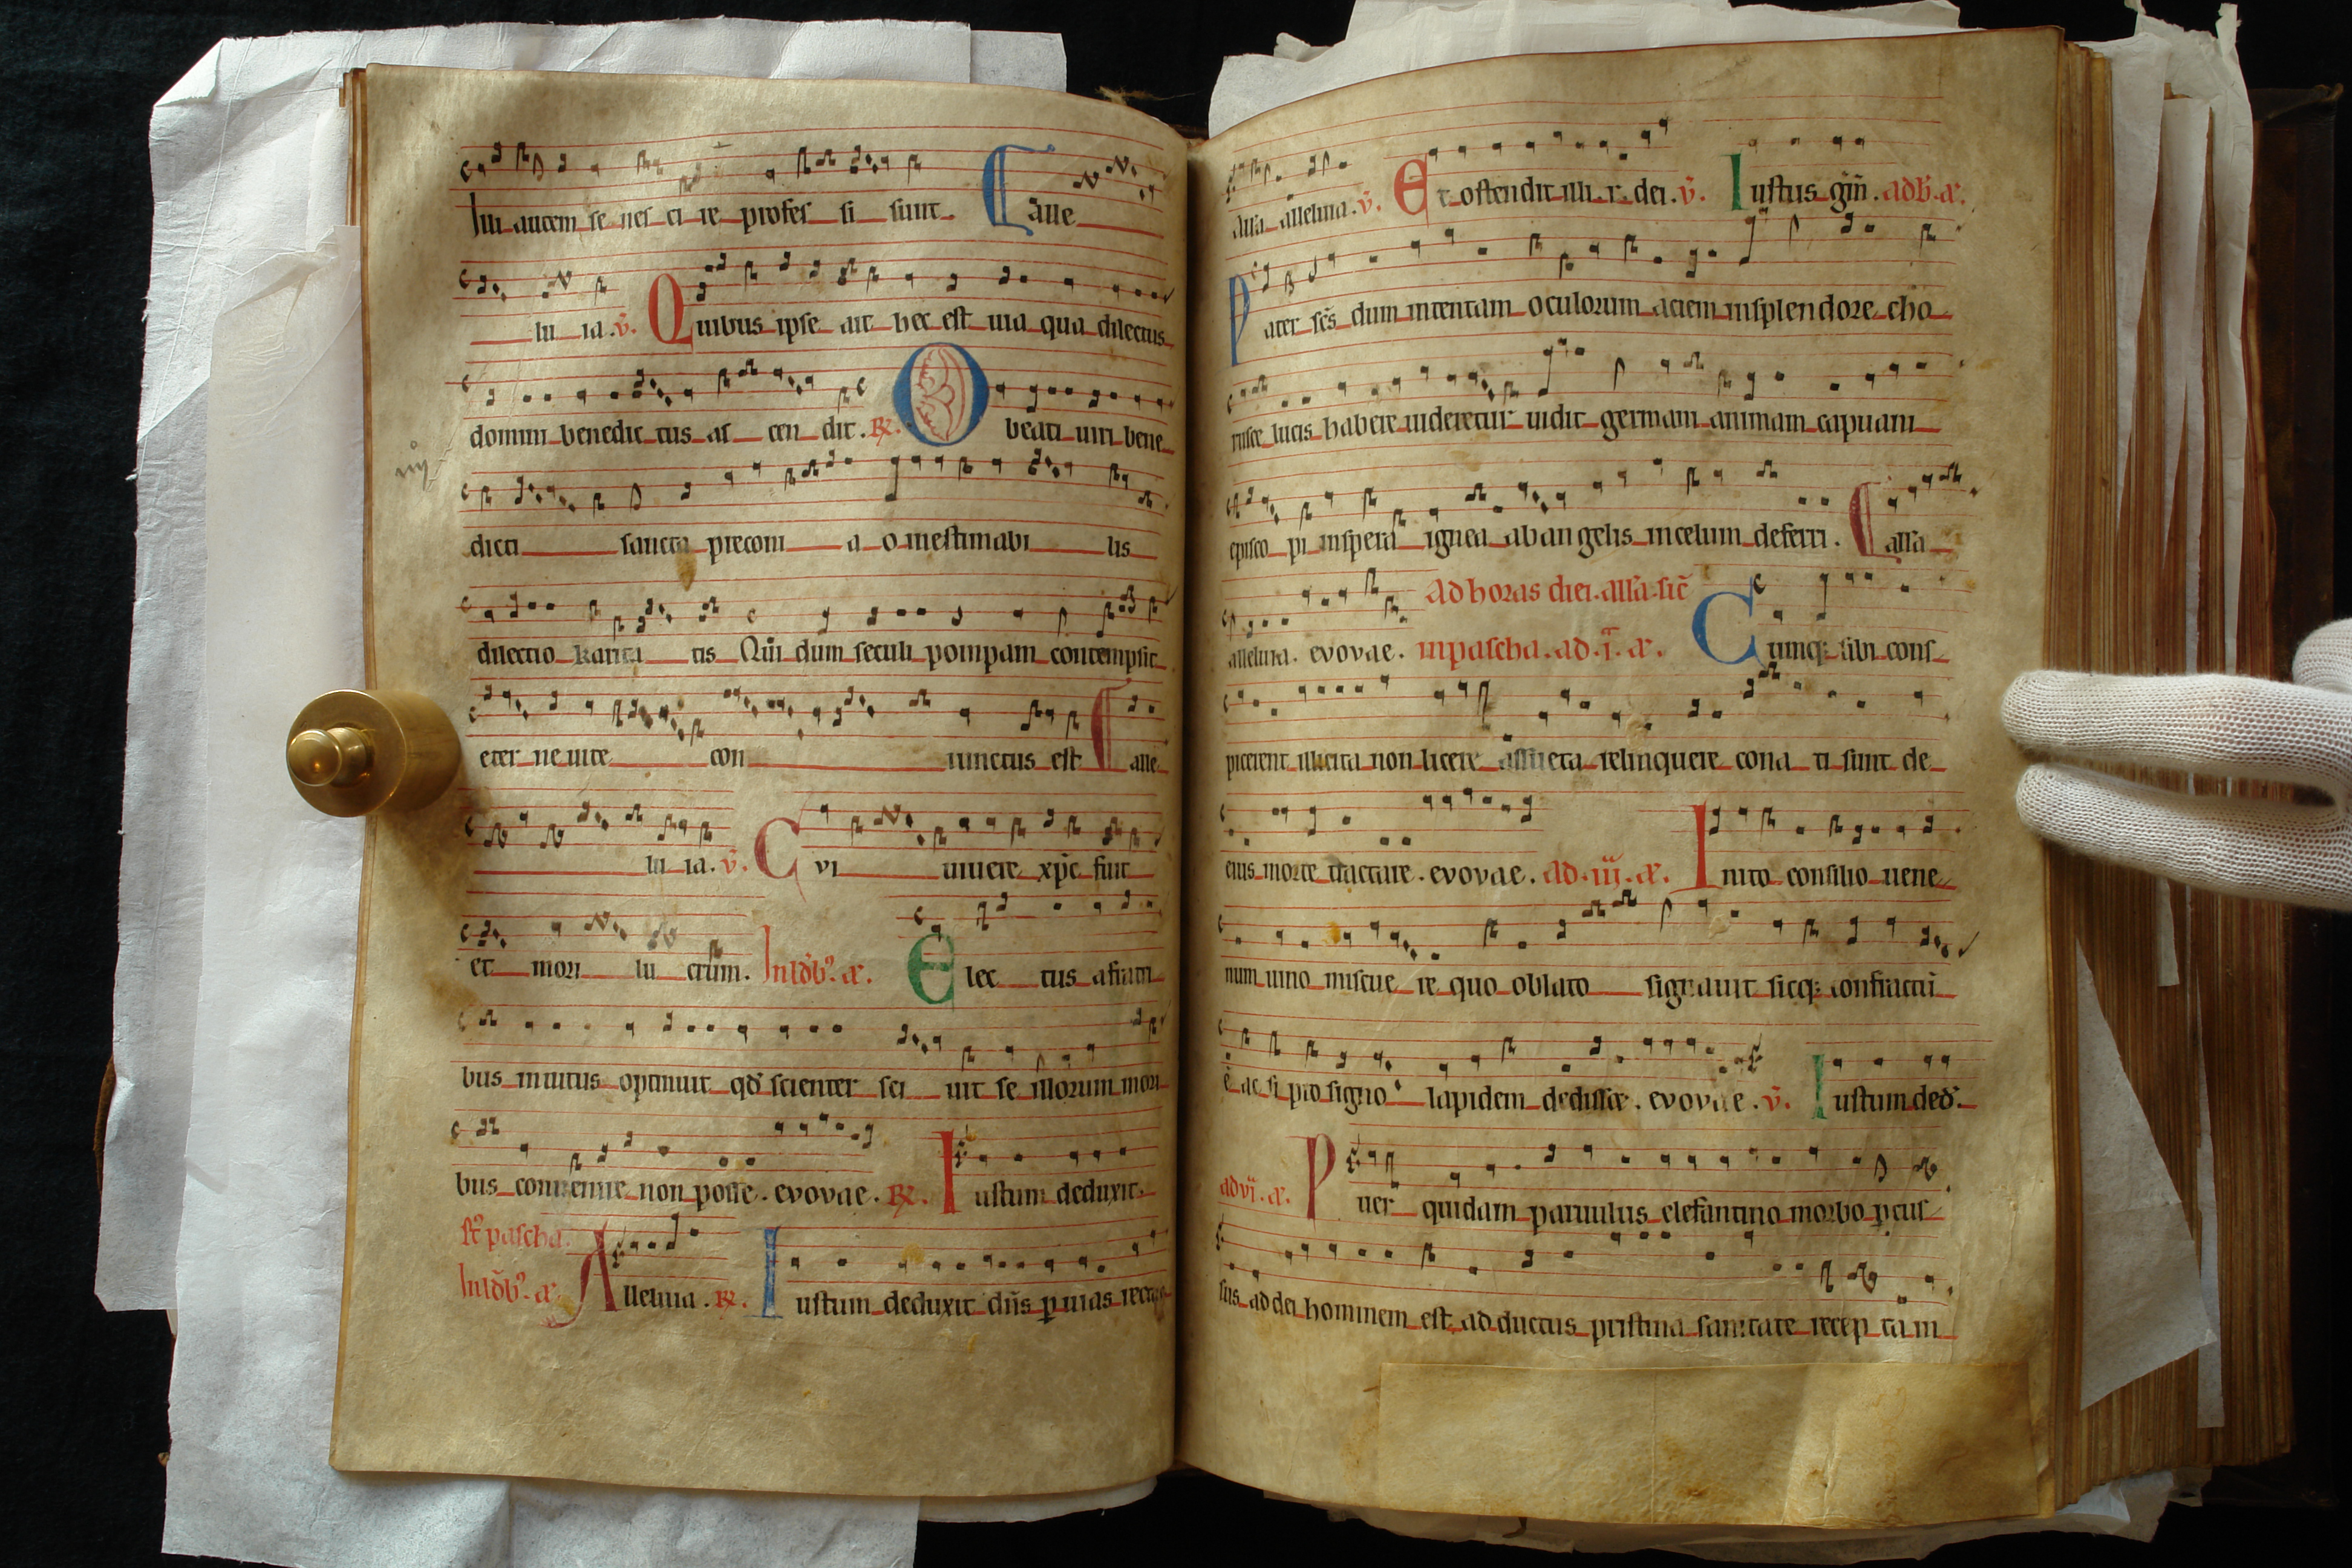 Illi autem se nes ci re profes si sunt. alle
lu ia. v̄. Quibus ipse ait hec est uia qua dilectus
domini benedic tus as cen dit. R̄. O beati uiri bene
dicti sancta preconi a o inestimabi lis
dilectio karita tis Qui dum seculi pompam contempsit
eter ne uite con iunctus est alle
lu ia. v̄. Cvi uiuere xp̄c fuit
et mori lu crum. In ł̄d̄b9. a̅. Elec tus a fratri
bus inuitus optinuit qd̄ scienter sci uit se illorum mori
bus conuenire non posse. evovae. R̄. Iustum deduxit.
pascha.
Alleluia. R̄. Iustum deduxit dn̄s p̱ uias rectas
all'a alleluia. v̄. Et ostendit illi. r. dei. v̄. Iustus gm̄.
Pater sc̄s dum intentam oculorum aciem in splendore cho
rusce lucis habere uideretur uidit germani animam capuani
episco pi in spera ignea ab angelis in celum deferri. all'a
Ad horas diei. all'a. sic̄
alleluia. evovae. in pascha. ad. ī. a̅. Cunq; sibi cons
picerent illicita non licere assueta relinquere cona ti sunt de
eius morte tractare. evovae. ad. iij. a̅. Inito consilio uene
num uino miscue re quo oblato signauit sicq; confractū
ē ac si pro signo lapidem dedisset. evovae. v̄. Iustum ded̄.
ad vī. a̅. Puer quidam paruulus elefantino morbo p̱cus
sus ad dei hominem est adductus pristina sanitate recep tam